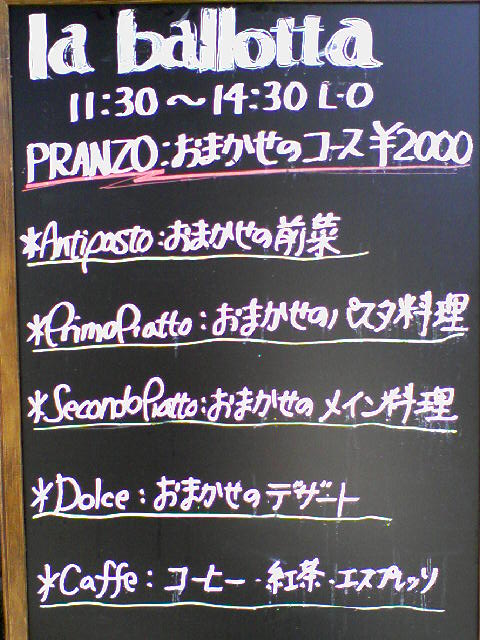 la ballotta
11:30～14:30 L・O
PRANZO:おまかせのコース ¥2000
*Antipasto:おまかせの前菜
*PrimoPiatto:おまかせのパスタ料理
*SecondoPiatto:おまかせのメイン料理
*Dolce:おまかせのデザート
*Caffe:コーヒー・紅茶・エスプレッソ